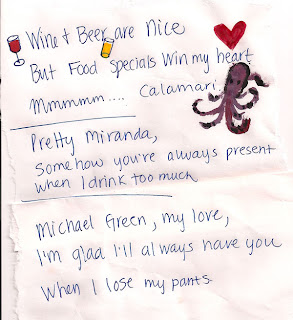 Wine + Beer are Nice
But Food Specials Win my heart
Mmmmmm.... Calamari.
Pretty Miranda,
Somehow you're always present
When I drink too much
Michael Green, my love,
I'm glad I'll always have you
When I lose my pants.